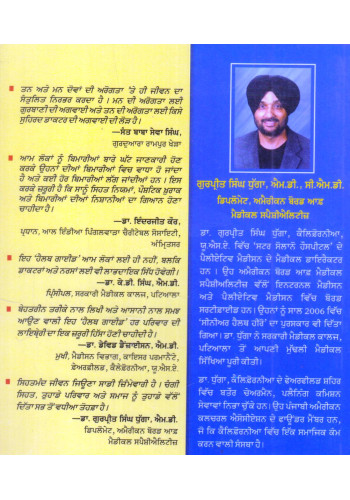 ਤਨ ਅਤੇ ਮਨ ਦੋਵਾਂ ਦੀ ਅਰੋਗਤਾ 'ਤੇ ਹੀ ਜੀਵਨ ਦਾ
ਸੰਤੁਲਿਤ ਨਿਰਭਰ ਕਰਦਾ ਹੈ । ਮਨ ਦੀ ਅਰੋਗਤਾ ਲਈ
ਗੁਰਬਾਣੀ ਦੀ ਅਗਵਾਈ ਅਤੇ ਤਨ ਦੀ ਅਰੋਗਤਾ ਲਈ ਕਿਸੇ
ਸੁਹਿਰਦ ਡਾਕਟਰ ਦੀ ਅਗਵਾਈ ਦੀ ਲੋੜ ਹੈ।
—ਸੰਤ ਬਾਬਾ ਸੇਵਾ ਸਿੰਘ,
ਗੁਰਦੁਆਰਾ ਰਾਮਪੁਰ ਖੇੜਾ
ਆਮ ਲੋਕਾਂ ਨੂੰ ਬਿਮਾਰੀਆਂ ਬਾਰੇ ਘੱਟ ਜਾਣਕਾਰੀ ਹੋਣ
ਕਰਕੇ ਉਹਨਾਂ ਦੀਆਂ ਬਿਮਾਰੀਆਂ ਵਿਚ ਵਾਧਾ ਹੋ ਜਾਂਦਾ
ਹੈ ਅਤੇ ਕਈ ਹੋਰ ਬਿਮਾਰੀਆਂ ਲੱਗ ਜਾਂਦੀਆਂ ਹਨ । ਇਸ
ਕਰਕੇ ਜ਼ਰੂਰੀ ਹੈ ਕਿ ਸਾਨੂੰ ਸਿਹਤ ਨਿਯਮਾਂ, ਪੌਸ਼ਟਿਕ ਖ਼ੁਰਾਕ
ਅਤੇ ਬਿਮਾਰੀਆਂ ਦੀਆਂ ਨਿਸ਼ਾਨੀਆਂ ਦਾ ਗਿਆਨ ਹੋਣਾ
ਚਾਹੀਦਾ ਹੈ।
—ਡਾ. ਇੰਦਰਜੀਤ ਕੌਰ,
ਪ੍ਰਧਾਨ, ਆਲ ਇੰਡੀਆ ਪਿੰਗਲਵਾੜਾ ਚੈਰੀਟੇਬਲ ਸੋਸਾਇਟੀ,
ਅੰਮ੍ਰਿਤਸਰ
ਇਹ 'ਹੈਲਥ ਗਾਈਡ' ਆਮ ਲੋਕਾਂ ਲਈ ਹੀ ਨਹੀਂ, ਬਲਕਿ
ਡਾਕਟਰਾਂ ਅਤੇ ਨਰਸਾਂ ਲਈ ਵੀ ਲਾਭਦਾਇਕ ਸਿੱਧ ਹੋਵੇਗੀ।
—ਡਾ. ਕੇ.ਡੀ. ਸਿੰਘ, ਐਮ.ਡੀ.
ਪ੍ਰਿੰਸੀਪਲ, ਸਰਕਾਰੀ ਮੈਡੀਕਲ ਕਾਲਜ, ਪਟਿਆਲਾ
ਬੇਹਤਰੀਨ ਤਰੀਕੇ ਨਾਲ ਲਿਖੀ ਅਤੇ ਆਸਾਨੀ ਨਾਲ ਸਮਝ
ਆਉਣ ਵਾਲੀ ਇਹ 'ਹੈਲਥ ਗਾਈਡ' ਹਰ ਪਰਿਵਾਰ ਦੀ
ਲਾਇਬ੍ਰੇਰੀ ਦਾ ਇਕ ਜ਼ਰੂਰੀ ਹਿੱਸਾ ਹੋਣੀ ਚਾਹੀਦੀ ਹੈ।
—ਡਾ. ਡੇਵਿਡ ਡੈਂਜ਼ਾਈਸਨ, ਐਮ.ਡੀ.
ਮੁਖੀ, ਮੈਡੀਸਨ ਵਿਭਾਗ, ਕਾਇਸਰ ਪਰਮਾਨੈਂਟੇ,
ਫੇਅਰਫੀਲਡ, ਕੈਲੇਫੋਰਨੀਆ, ਯੂ.ਐਸ.ਏ.
ਸਿਹਤਮੰਦ ਜੀਵਨ ਜਿਉਣਾ ਸਾਡੀ ਜ਼ਿੰਮੇਵਾਰੀ ਹੈ। ਚੰਗੀ
ਸਿਹਤ, ਤੁਹਾਡੇ ਪਰਿਵਾਰ ਅਤੇ ਸਮਾਜ ਨੂੰ ਤੁਹਾਡੇ ਵੱਲੋਂ
ਦਿੱਤਾ ਸਭ ਤੋਂ ਵਧੀਆ ਤੋਹਫ਼ਾ ਹੈ।
—ਡਾ. ਗੁਰਪ੍ਰੀਤ ਸਿੰਘ ਧੁੱਗਾ, ਐਮ.ਡੀ.
ਡਿਪਲੋਮੇਟ, ਅਮੈਰੀਕਨ ਬੋਰਡ ਆਫ਼
ਮੈਡੀਕਲ ਸਪੈਸ਼ੀਐਲਿਟੀਜ਼
ਗੁਰਪ੍ਰੀਤ ਸਿੰਘ ਧੁੱਗਾ, ਐਮ.ਡੀ., ਸੀ.ਐਮ.ਡੀ.
ਡਿਪਲੋਮੇਟ, ਅਮੈਰੀਕਨ ਬੋਰਡ ਆਫ਼
ਮੈਡੀਕਲ ਸਪੈਸ਼ੀਐਲਿਟੀਜ਼
ਡਾ. ਗੁਰਪ੍ਰੀਤ ਸਿੰਘ ਧੁੱਗਾ, ਕੈਲਿਫ਼ੋਰਨੀਆ,
ਯੂ.ਐਸ.ਏ. ਵਿੱਚ 'ਸਟਰ ਸੋਲਾਨੋ ਹੌਸਪੀਟਲ' ਦੇ
ਪੈਲੀਏਟਿਵ ਮੈਡੀਸਨ ਦੇ ਮੈਡੀਕਲ ਡਾਇਰੈਕਟਰ
ਹਨ । ਉਹ ਅਮੈਰੀਕਨ ਬੋਰਡ ਆਫ਼ ਮੈਡੀਕਲ
ਸਪੈਸ਼ੀਐਲਿਟੀਜ਼ ਵੱਲੋਂ ਇਨਟਰਨਲ ਮੈਡੀਸਨ
ਅਤੇ ਪੈਲੀਏਟਿਵ ਮੈਡੀਸਨ ਵਿੱਚ ਬੋਰਡ
ਸਰਟੀਫਾਈਡ ਹਨ। ਉਹਨਾਂ ਨੂੰ ਸਾਲ 2006 ਵਿੱਚ
'ਸੀਨੀਅਰ ਹੈਲਥ ਹੀਰੋ' ਦਾ ਪੁਰਸਕਾਰ ਵੀ ਦਿੱਤਾ
ਗਿਆ। ਡਾ. ਧੁੱਗਾ ਨੇ ਸਰਕਾਰੀ ਮੈਡੀਕਲ ਕਾਲਜ,
ਪਟਿਆਲਾ ਤੋਂ ਆਪਣੀ ਮੁੱਢਲੀ ਮੈਡੀਕਲ
ਸਿੱਖਿਆ ਪੂਰੀ ਕੀਤੀ।
ਡਾ. ਧੁੱਗਾ, ਕੈਲਿਫ਼ੋਰਨੀਆ ਦੇ ਫੇਅਰਫੀਲਡ ਸ਼ਹਿਰ
ਵਿੱਚ ਬਤੌਰ ਚੇਅਰਮੈਨ, ਪਲੈਨਿੰਗ ਕਮਿਸ਼ਨ
ਸੇਵਾਵਾਂ ਨਿਭਾ ਚੁੱਕੇ ਹਨ। ਉਹ ਪੰਜਾਬੀ ਅਮੈਰੀਕਨ
ਕਲਚਰਲ ਐਸੋਸੀਏਸ਼ਨ ਦੇ ਫਾਊਂਡਰ ਮੈਂਬਰ ਹਨ,
ਜੋ ਕਿ ਕੈਲਿਫ਼ੋਰਨੀਆ ਵਿੱਚ ਇੱਕ ਸਮਾਜਿਕ ਕੰਮ
ਕਰਨ ਵਾਲੀ ਸੰਸਥਾ ਹੈ।